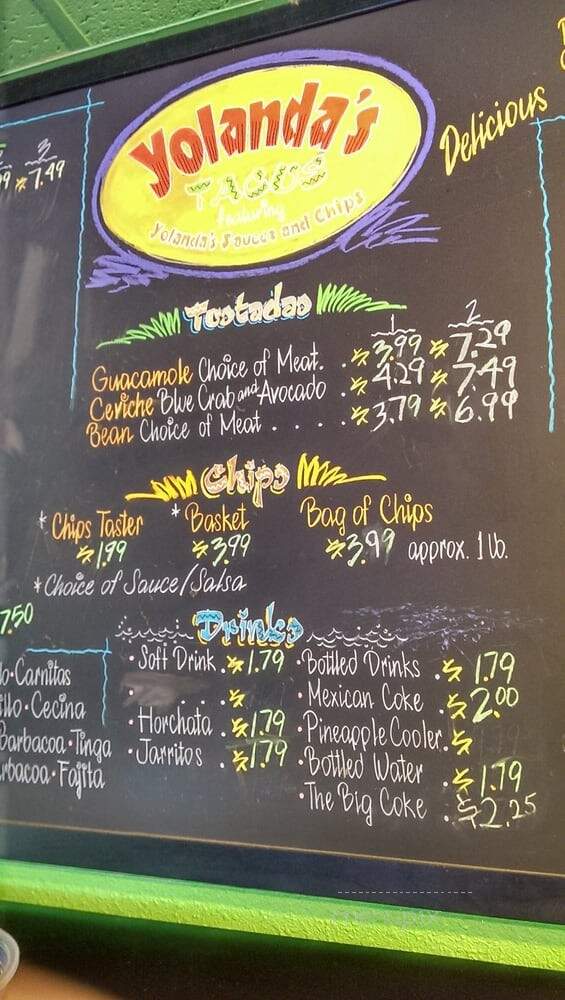 Yolanda's
TACOS
featuring
Yolanda's Sauces and Chips
Delicious
3
$7.49
Tostadas
1 2
Guacamole Choice of Meat. . $3.99 $7.29
Ceviche Blue Crab and Avocado . $4.29 $7.49
Bean Choice of Meat . . . . . $3.79 $6.99
Chips
* Chips Taster * Basket Bag of Chips
$1.99 $3.99 $3.99 approx. 1 lb.
* Choice of Sauce/Salsa
7.50
Drinks
· Soft Drink . $1.79 · Bottled Drinks . $1.79
· . $ · Mexican Coke . $2.00
· Horchata . $1.79 · Pineapple Cooler. $
· Jarritos . $1.79 · Bottled Water . $1.79
· The Big Coke . $2.25
o·Carnitas
illo·Cecina
Barbacoa·Tinga
rbacoa·Fajita